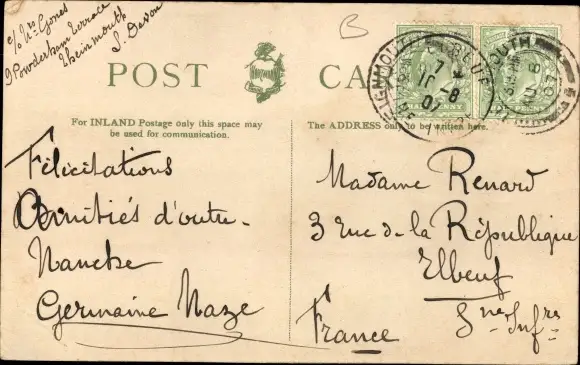 c/o Mrs Jones
9 Powderham Terrace
Theinmouth
S. Devon
B
POST CA
For INLAND Postage only this space may
be used for communication.
The ADDRESS only to be written here.
TEIGNMOUTH
ELBEUF
7
10 -8
07
Félicitations
Amitiés d'outre-
Manche
Germaine Naze
Madame Renard
3 rue de la République
Elbeuf
Sne Infre
France